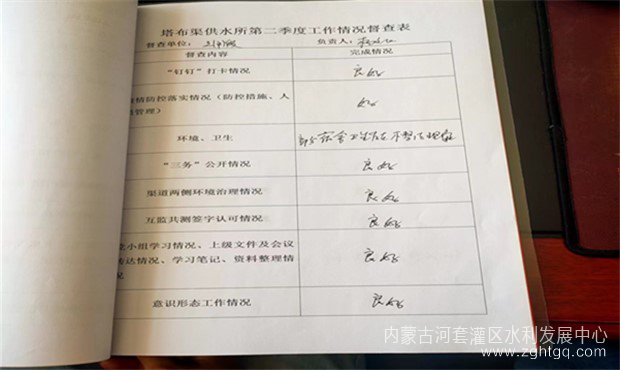 塔布渠供水所第二季度工作情况督查表
督查单位： 负责人：
督查内容 完成情况
“钉钉”打卡情况 良好
情防控落实情况（防控措施、人 好
管理）
环境、卫生 部分宿舍卫生存在不整洁现象
“三务”公开情况 良好
渠道两侧环境治理情况 良好
互监共测签字认可情况 良好
小组学习情况、上级文件及会议 良好
达情况、学习笔记、资料整理情
况
意识形态工作情况 良好
内蒙古河套灌区水利发展中心
www.zghtgq.com